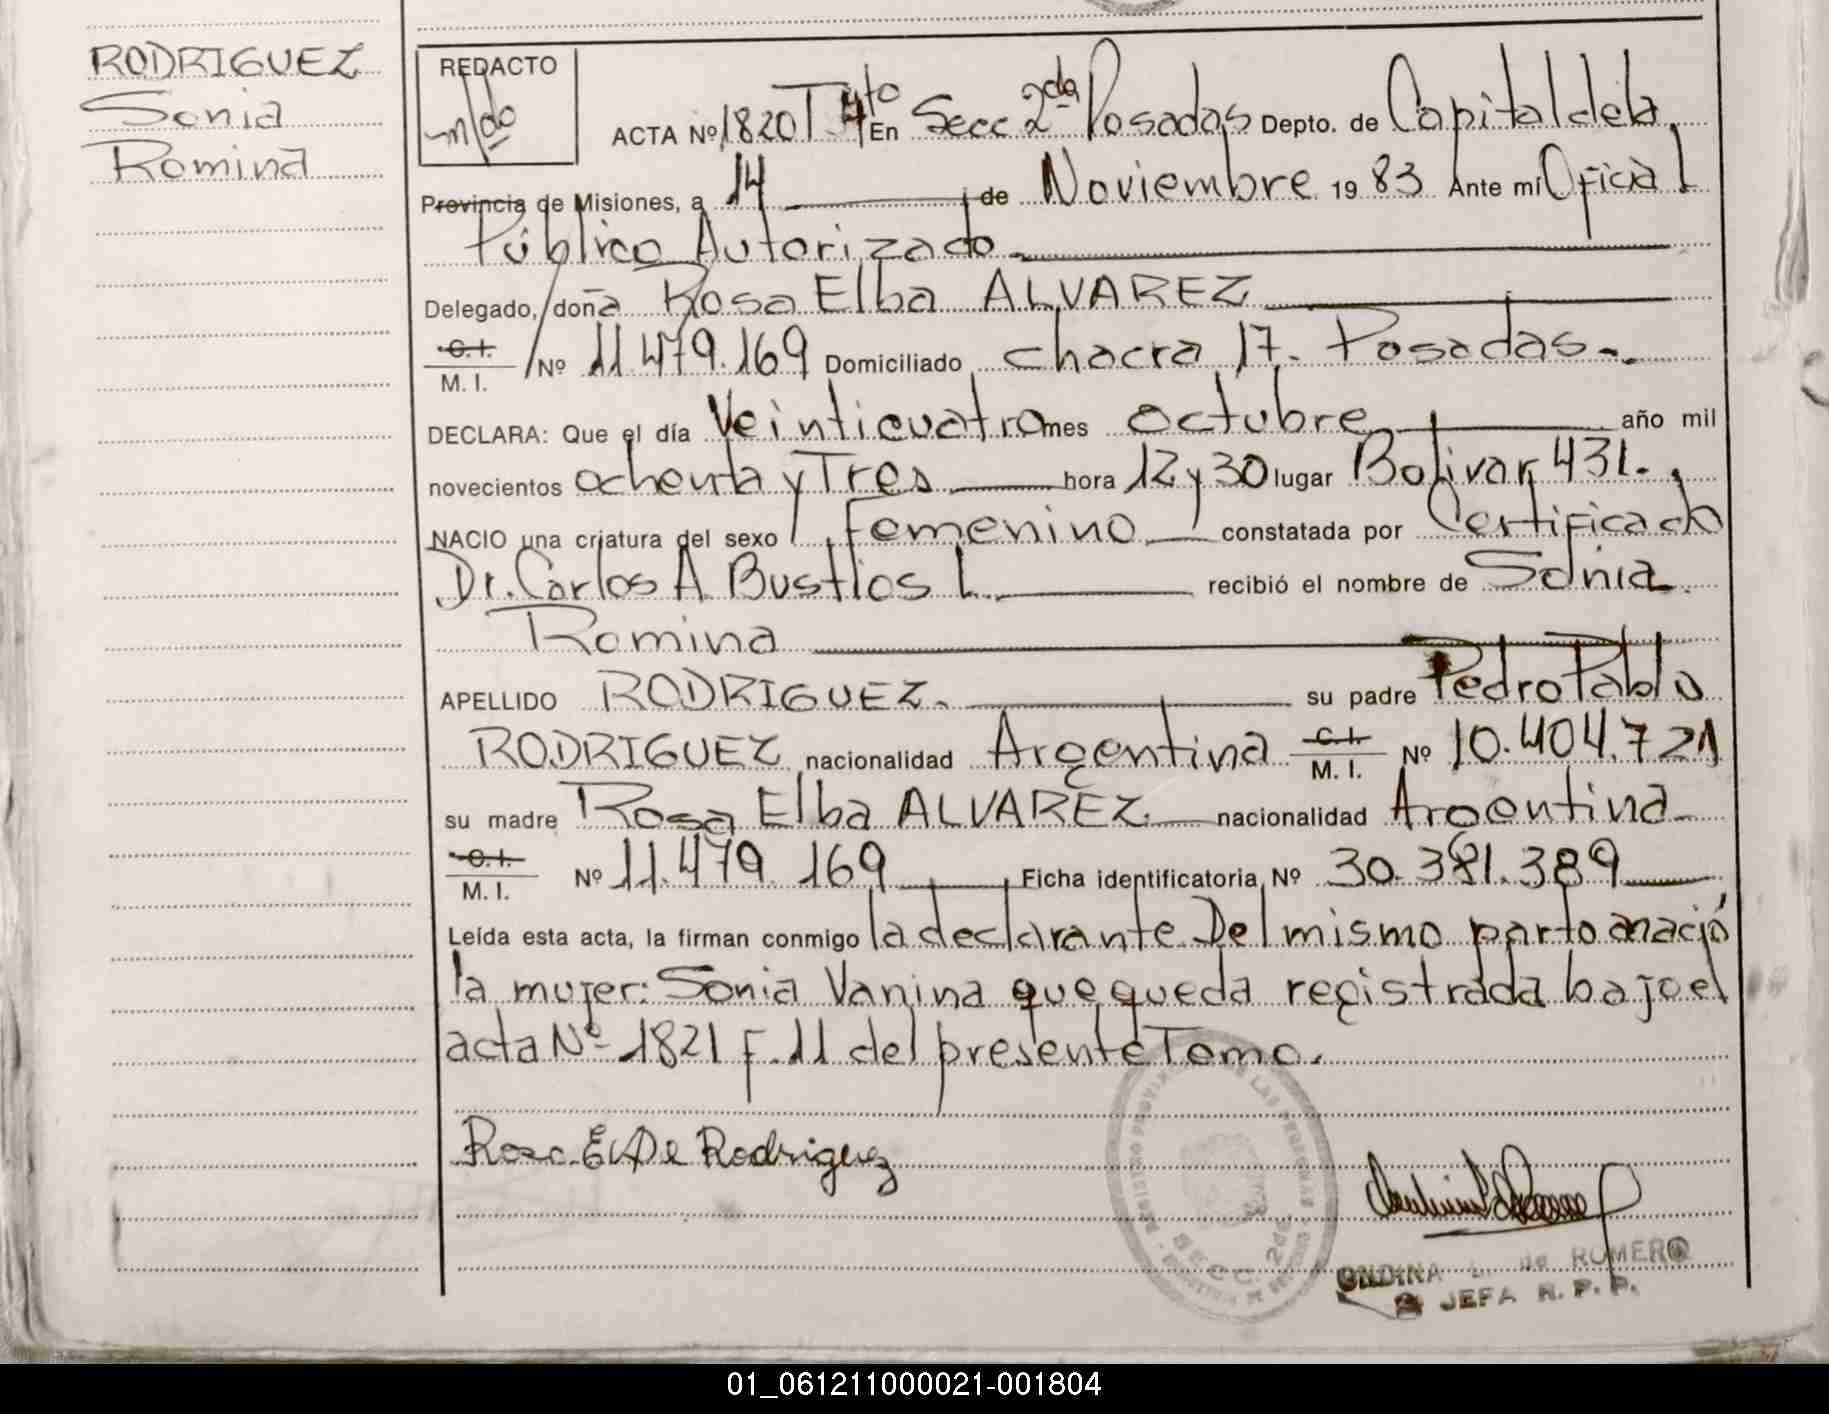 RODRIGUEZ
Sonia
Romina
REDACTO
m/do
ACTA Nº 1820 T 4to En Secc 2da Posadas Depto. de Capital de la
Provincia de Misiones, a 14 de Noviembre 19 83 Ante mí Oficial
Público Autorizado.
Delegado, doña Rosa Elba ALVAREZ
C.I.
M. I.
Nº 11.479.169 Domiciliado chacra 17. Posadas.
DECLARA: Que el día Veinticuatro mes octubre año mil
novecientos ochenta y Tres hora 12 y 30 lugar Bolivar 431.
NACIO una criatura del sexo Femenino constatada por Certificado
Dr. Carlos A Bustlos L. recibió el nombre de Sonia
Romina
APELLIDO RODRIGUEZ. su padre Pedro Pablo
RODRIGUEZ nacionalidad Argentina C.I. Nº 10.404.721
M. I.
su madre Rosa Elba ALVAREZ. nacionalidad Argentina
C.I.
M. I.
Nº 11.479.169 Ficha identificatoria Nº 30.381.389
Leída esta acta, la firman conmigo la declarante. Del mismo parto nació
la mujer: Sonia Vanina que queda registrada bajo el
acta Nº 1821 F. 11 del presente Tomo.
Rosa E. A De Rodriguez
SECC. 2da.
ONDINA L. de ROMERO
JEFA R. P. P.
01_061211000021-001804